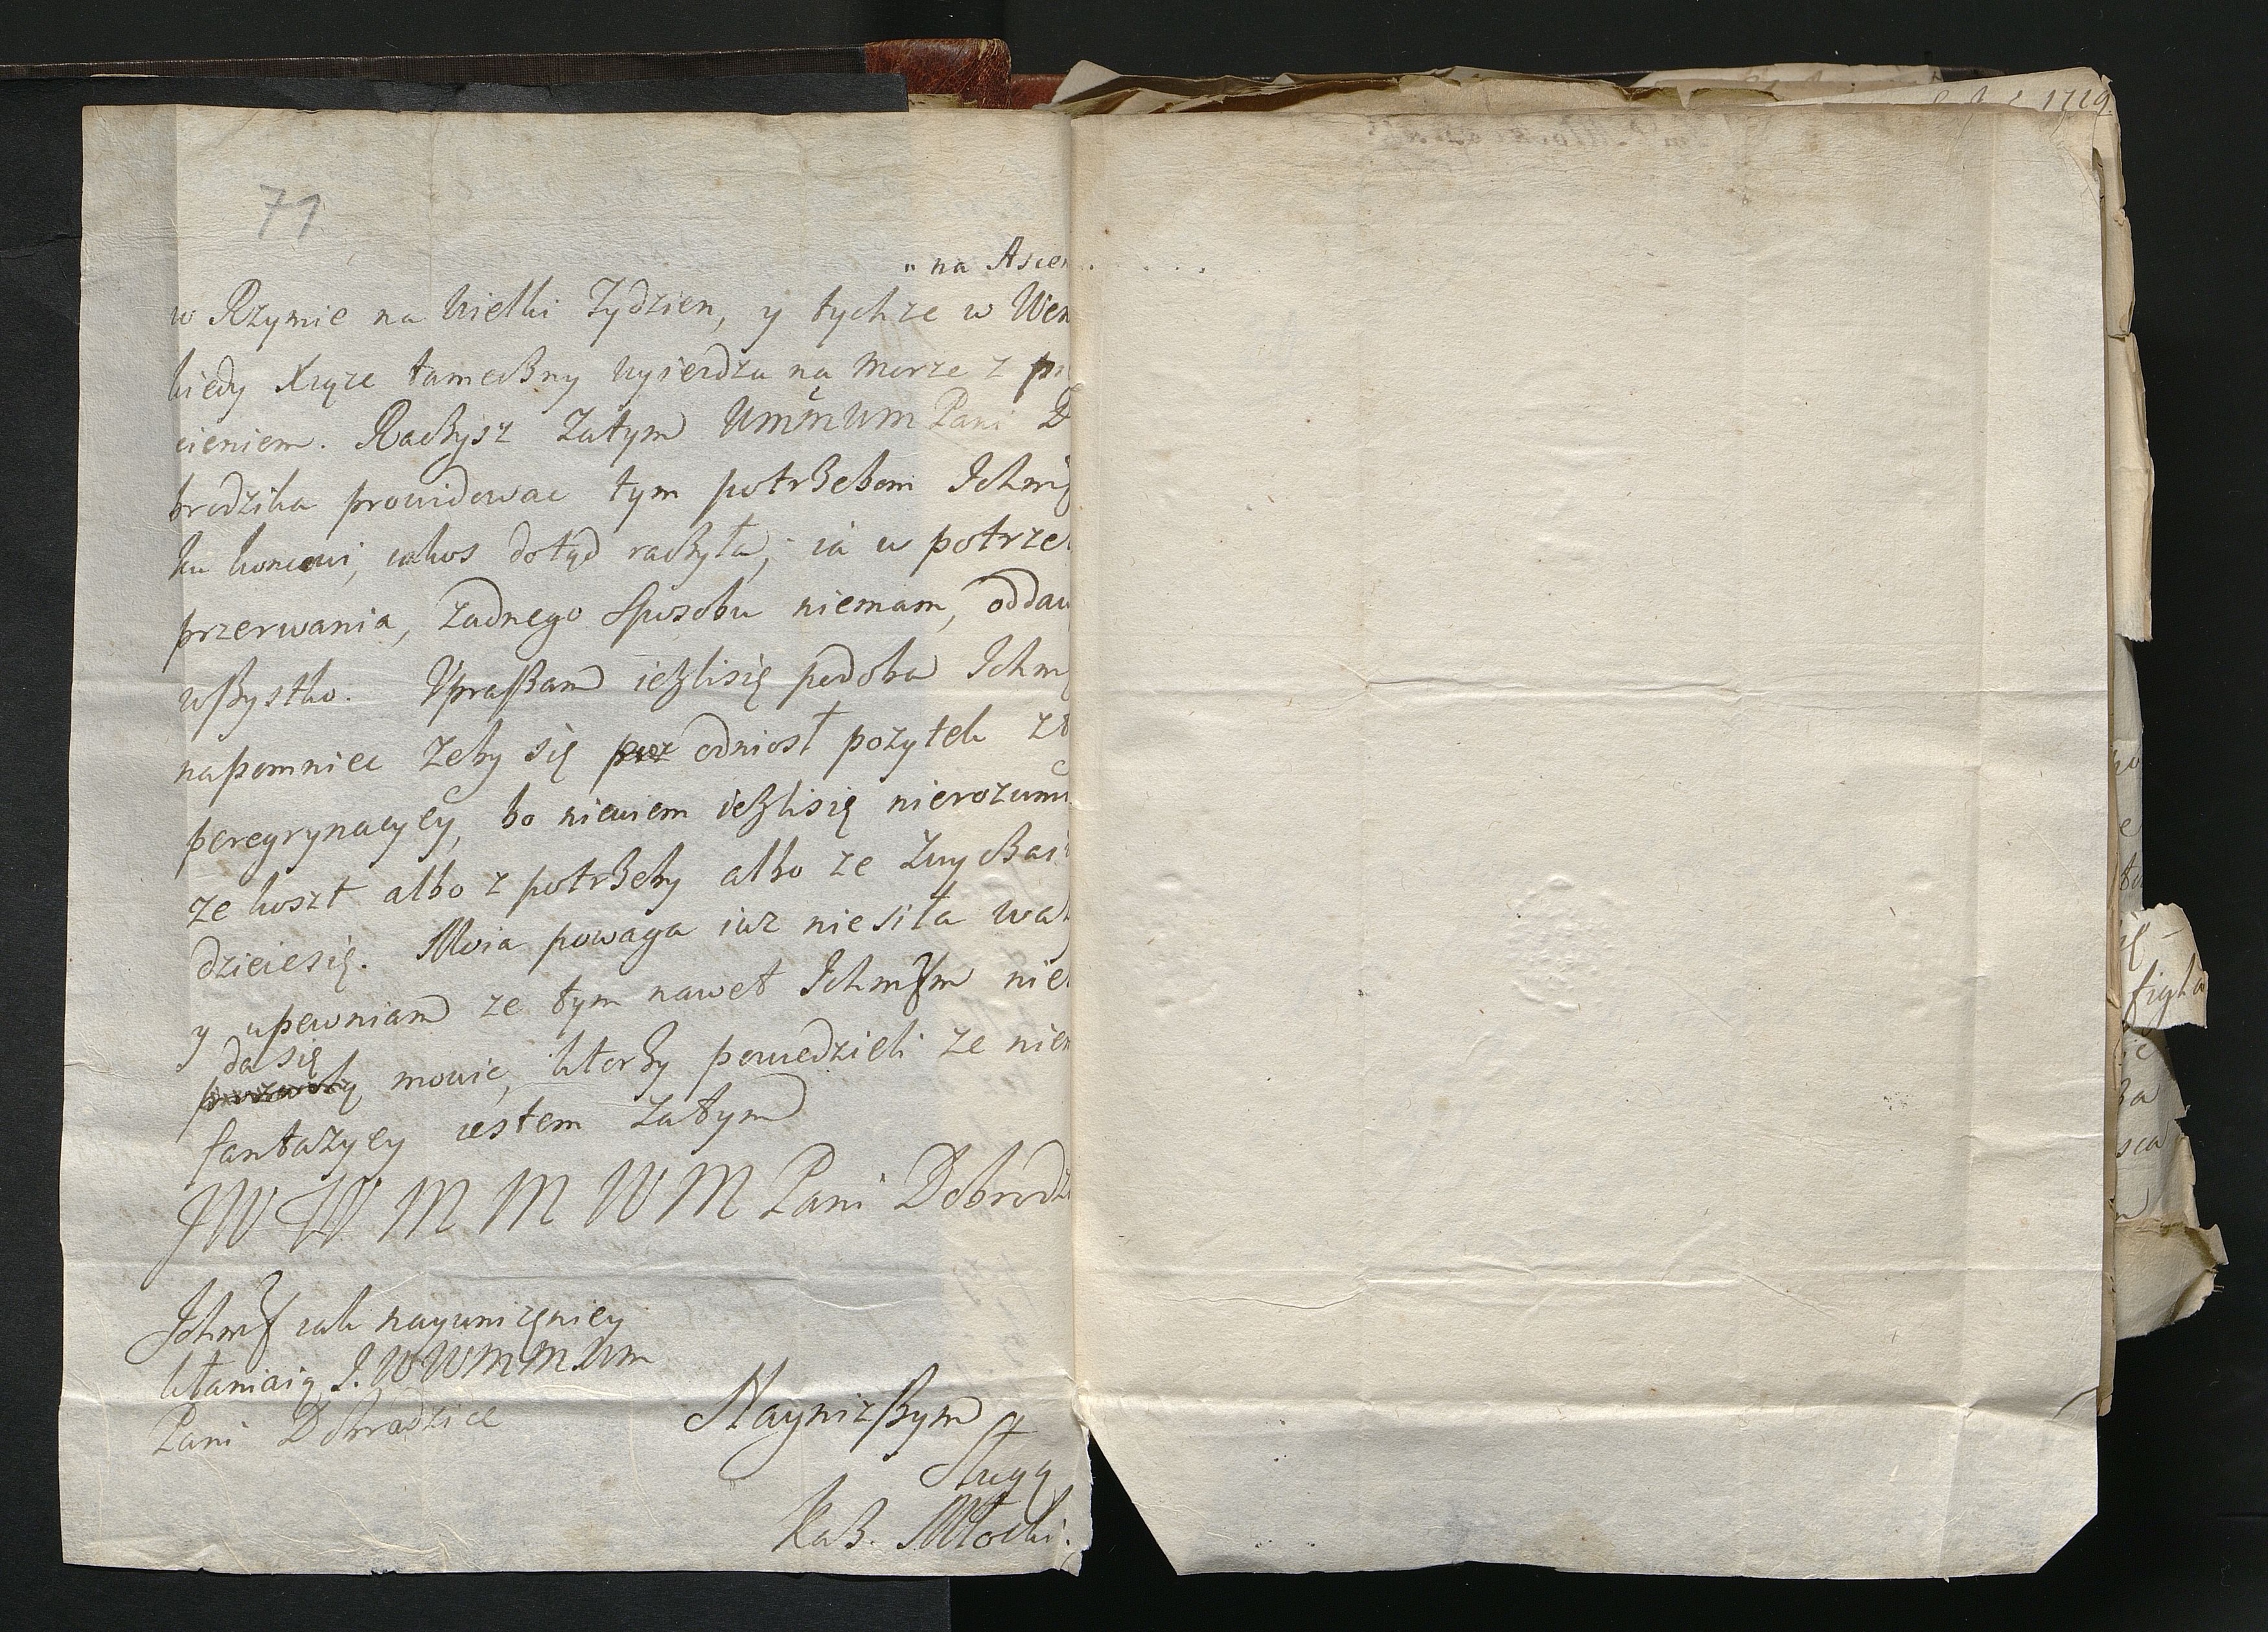 1729
71
" na Ascen
w Rzymie na wielki Tydzien, y tychze w Wen
kiedy Xiąze tameczny wyiezdza na morze z
cieniem. Raczysz zatym WmmWm Pani D
brodzika prowidowac tym potrzebom Ichm
ku koncowi, iakos dotąd raczyła, ia w potrze
przerwania, zadnego sposobu niemam, oddau
wszystko. Upraszam iezlisię podoba Ichm
napomniec zeby się odniosł pozytek z t
peregrynacyey, bo niewiem iezlisię nierozumi
ze koszt albo z potrzeby albo ze zwyczai
dzieiesię. Moia powaga iuz niesiła wa
y upewniam ze tym nawet Ichmm nie
da się
mowic, ktorzy powiedzieli ze nie
fantazyey iestem zatym
JW W M M W M Pani Dobrodzi
Ichm iak nayunizeniey
kłaniaią J. W W M M Wm
Pani Dobrodzice
Nayniszszym
sługą
Kaz. Młocki.